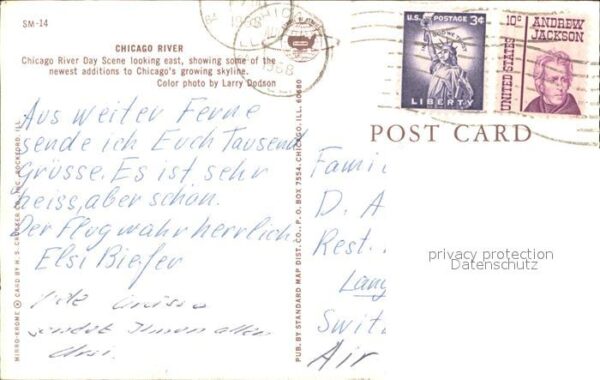 SM-14
CHICAGO RIVER
Chicago River Day Scene looking east, showing some of the
newest additions to Chicago's growing skyline.
Color photo by Larry Dodson
1968
1968
U.S. POSTAGE 3¢
IN GOD WE TRUST
LIBERTY
10c ANDREW
JACKSON
UNITED STATES
POST CARD
Aus weiter Ferne
sende ich Euch Tausend
Grüsse. Es ist sehr
heiss, aber schön.
Der Flug wahr herrlich.
Elsi Biefer
sendet Ihnen allen
MIRRO-KROME ® CARD BY H. S. CROCKER CO., INC. ROCKFORD, ILL.
PUB. BY STANDARD MAP DIST. CO., P. O. BOX 7554, CHICAGO, ILL. 60680
Famil
D. A
Rest.
Lang
Switz
Air
privacy protection
Datenschutz